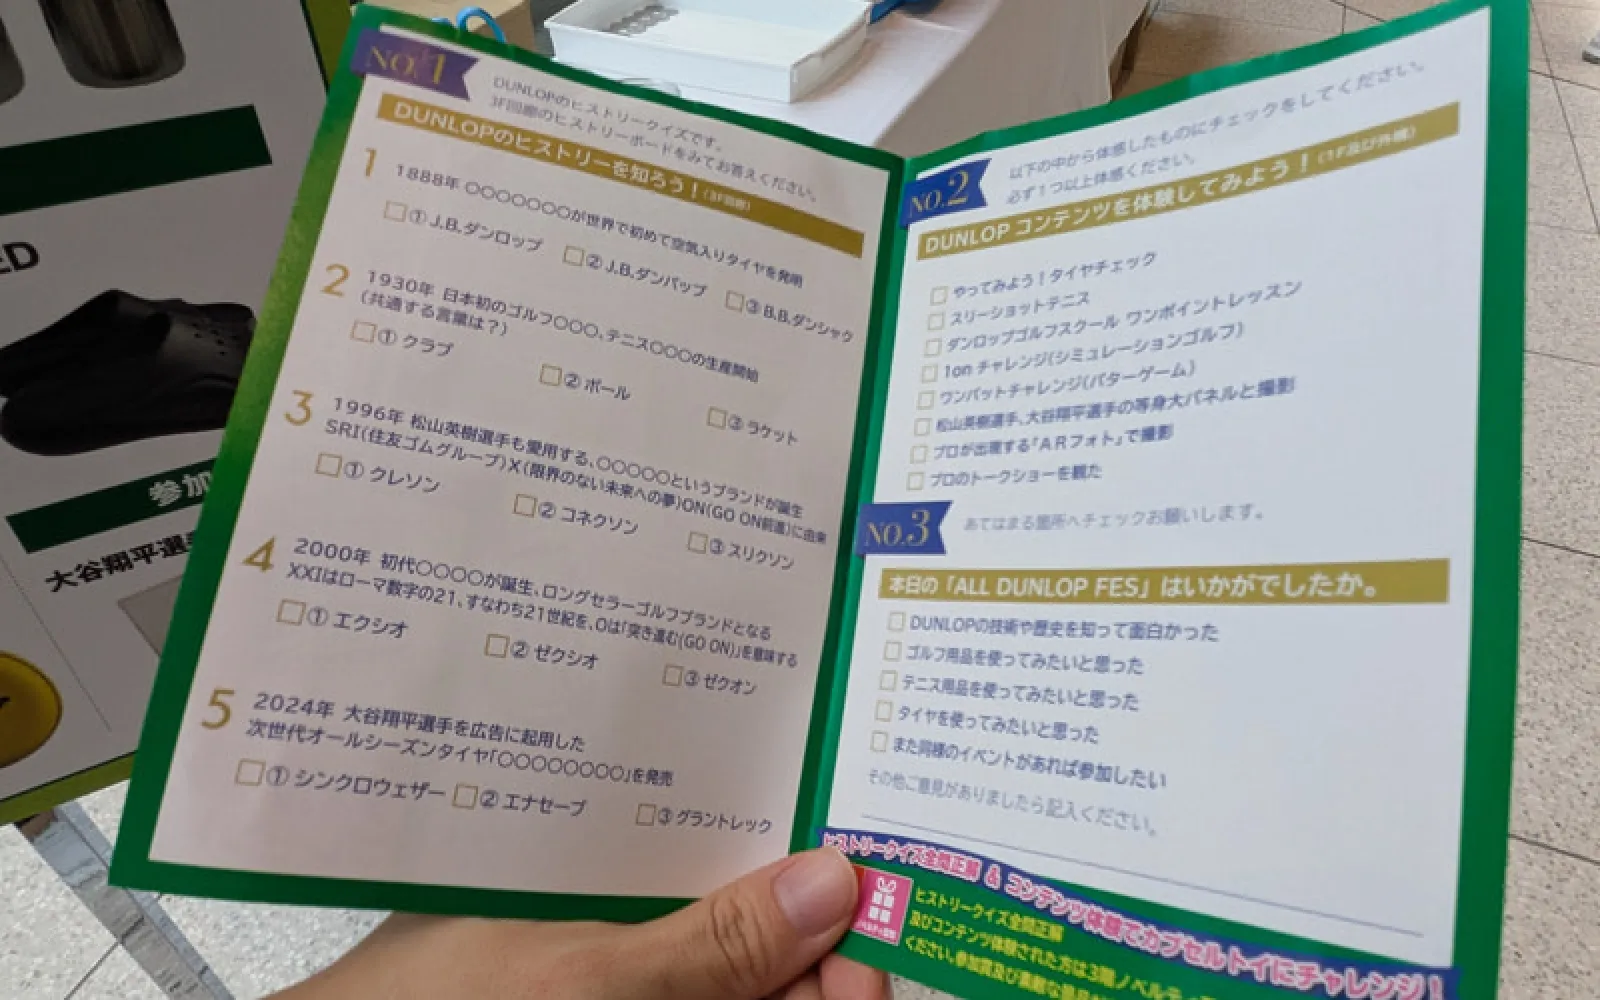 ED
参加
大谷翔平選手
NO.1
DUNLOPのヒストリークイズです。
3F回廊のヒストリーボードをみてお答えください。
DUNLOPのヒストリーを知ろう！(3F回廊)
1
1888年 〇〇〇〇〇〇〇が世界で初めて空気入りタイヤを発明
□① J.B.ダンロップ □② J.B.ダンパップ □③ B.B.ダンシャク
2
1930年 日本初のゴルフ〇〇〇、テニス〇〇〇の生産開始
(共通する言葉は？)
□① クラブ □② ボール □③ ラケット
3
1996年 松山英樹選手も愛用する、〇〇〇〇〇というブランドが誕生
SRI(住友ゴムグループ)X(限界のない未来への夢)ON(GO ON前進)に由来
□① クレソン □② コネクソン □③ スリクソン
4
2000年 初代〇〇〇〇が誕生、ロングセラーゴルフブランドとなる
XXIはローマ数字の21、すなわち21世紀を、Oは「突き進む(GO ON)」を意味する
□① エクシオ □② ゼクシオ □③ ゼクオン
5
2024年 大谷翔平選手を広告に起用した
次世代オールシーズンタイヤ「〇〇〇〇〇〇〇〇」を発売
□① シンクロウェザー □② エナセーブ □③ グラントレック
NO.2
以下の中から体感したものにチェックをしてください。
必ず1つ以上体感ください。
DUNLOP コンテンツを体験してみよう！(1F及び外構)
□ やってみよう！タイヤチェック
□ スリーショットテニス
□ ダンロップゴルフスクール ワンポイントレッスン
□ 1on チャレンジ(シミュレーションゴルフ)
□ ワンパットチャレンジ(パターゲーム)
□ 松山英樹選手、大谷翔平選手の等身大パネルと撮影
□ プロが出現する「ARフォト」で撮影
□ プロのトークショーを観た
NO.3
あてはまる箇所へチェックお願いします。
本日の「ALL DUNLOP FES」はいかがでしたか。
□ DUNLOPの技術や歴史を知って面白かった
□ ゴルフ用品を使ってみたいと思った
□ テニス用品を使ってみたいと思った
□ タイヤを使ってみたいと思った
□ また同様のイベントがあれば参加したい
その他ご意見がありましたら記入ください。
ヒストリークイズ全問正解 & コンテンツ体験でカプセルトイにチャレンジ！
ヒストリークイズ全問正解
及びコンテンツ体験された方は3階 ノベルティ
ください。参加賞及び素敵な